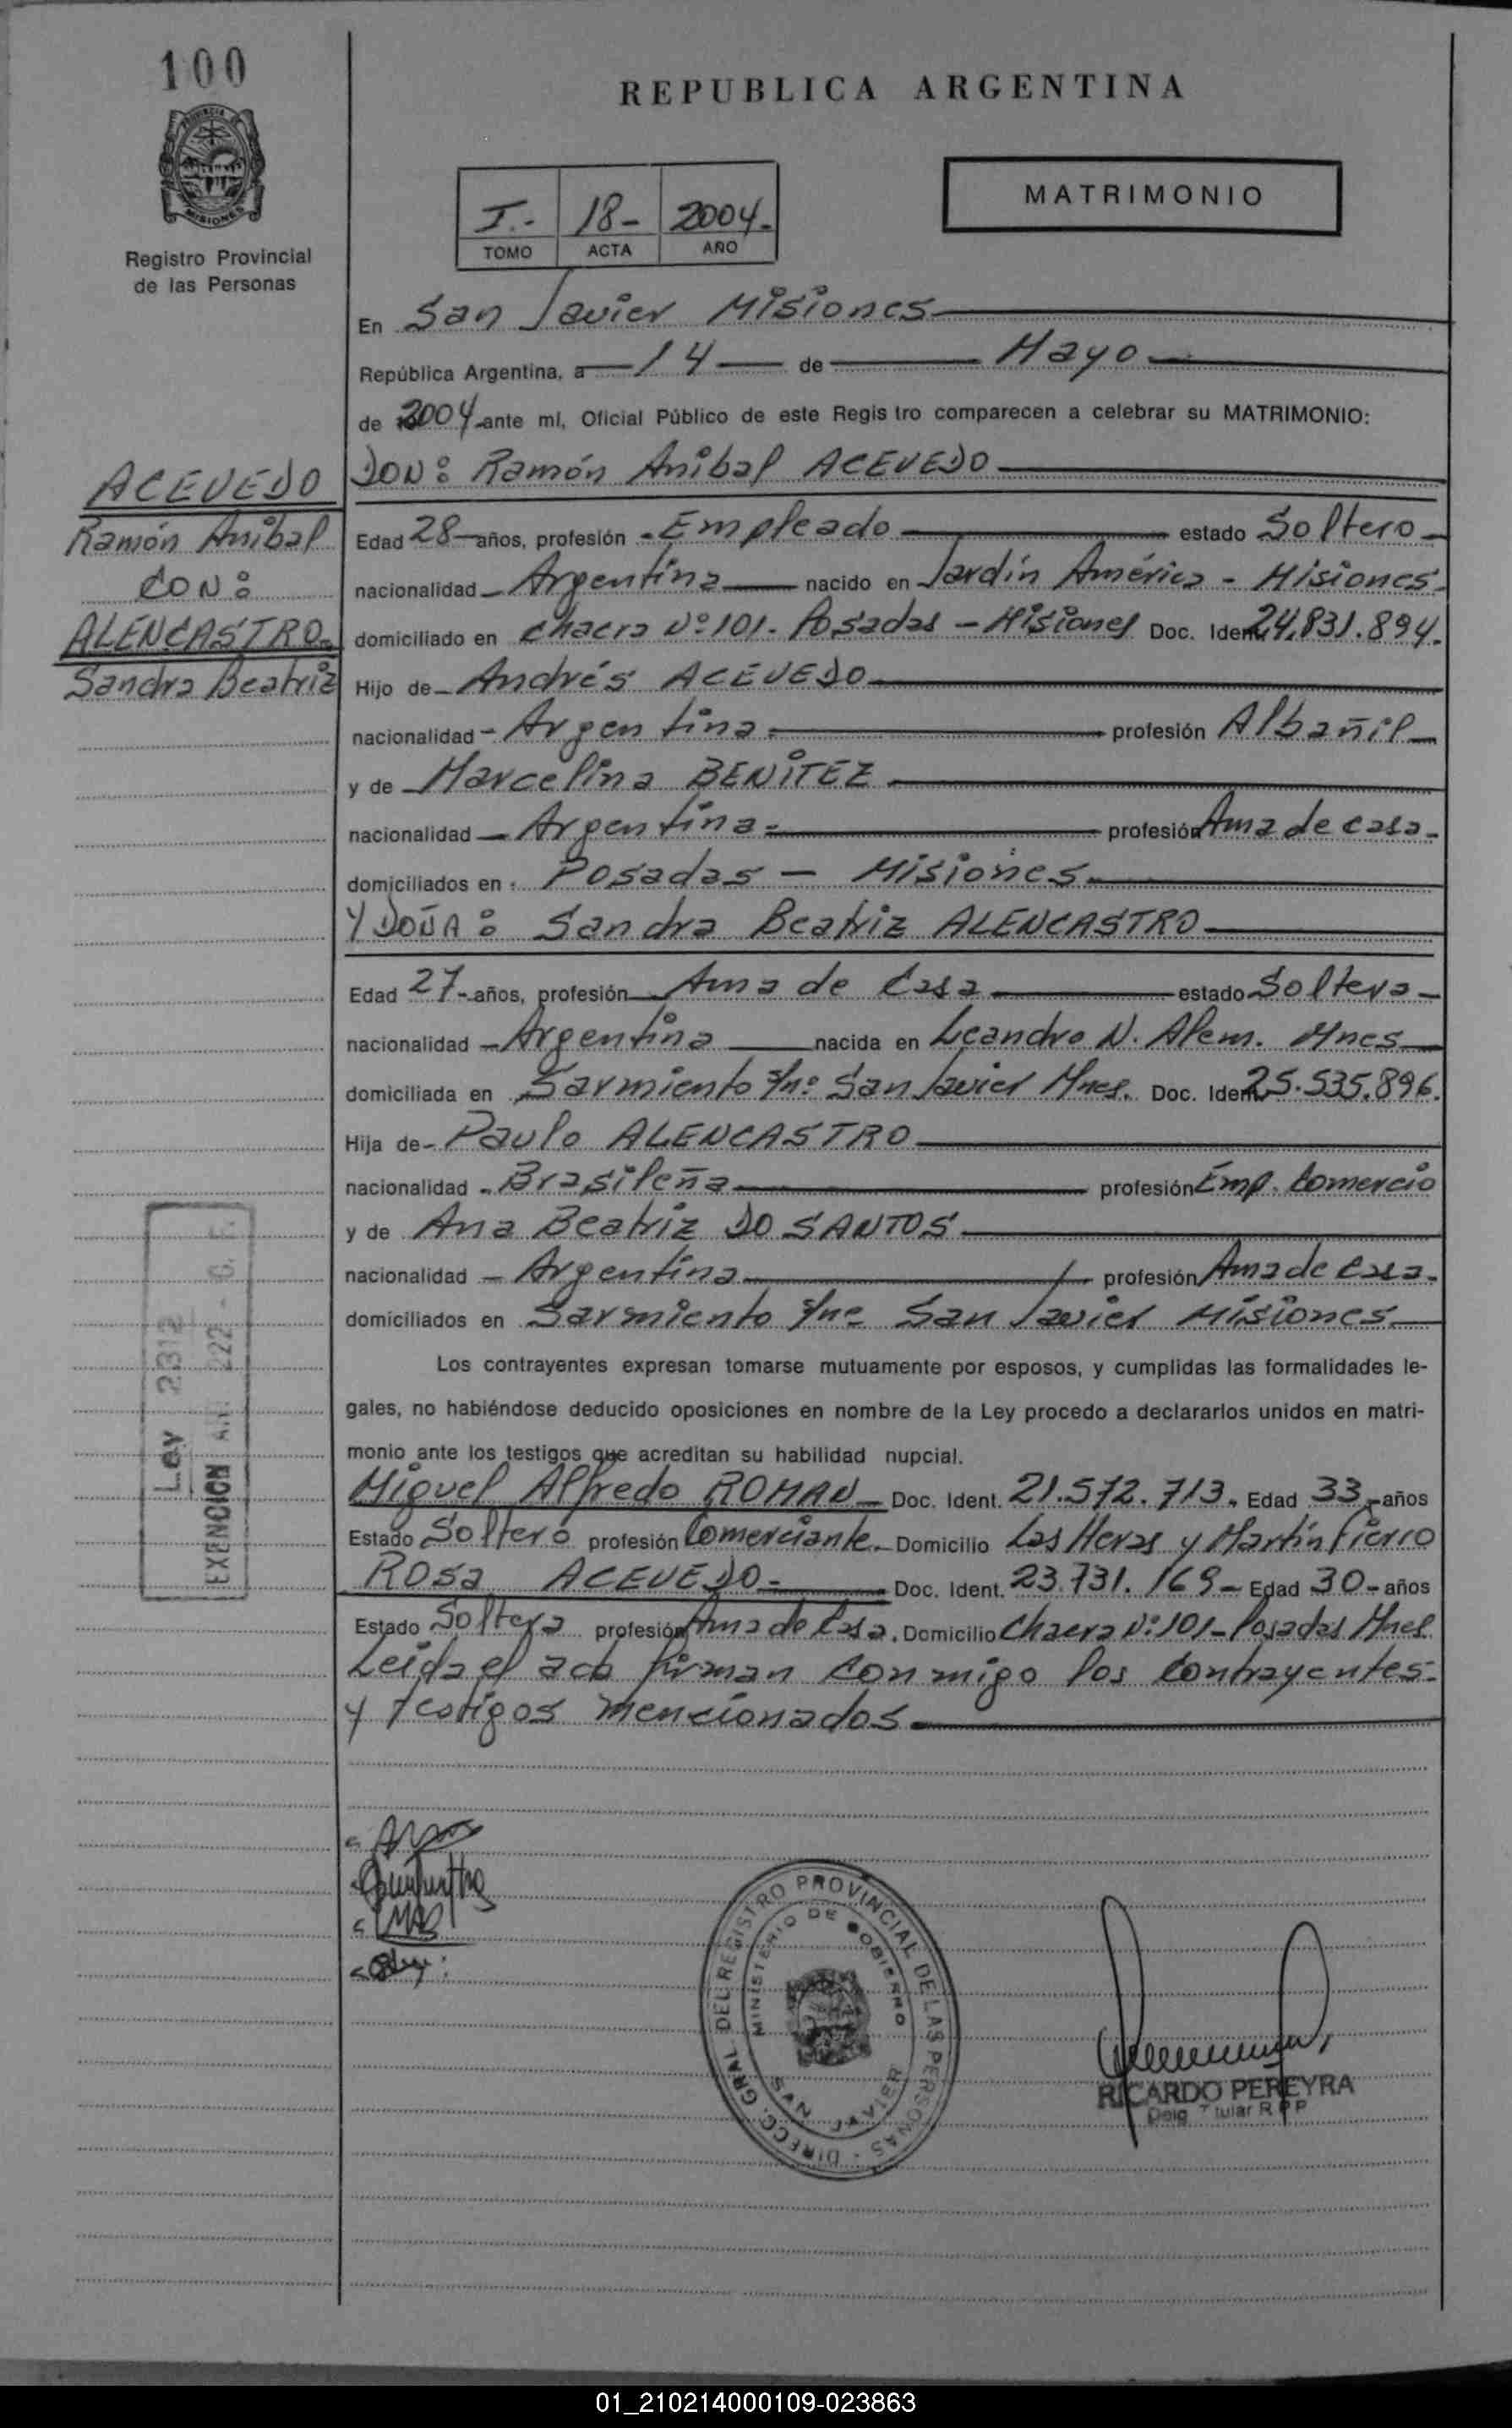 100
REPUBLICA ARGENTINA
MATRIMONIO
I.- 18- 2004.-
TOMO ACTA AÑO
PROVINCIA DE
MISIONES
Registro Provincial
de las Personas
En San Javier Misiones
República Argentina, a 14 de Mayo
de 2004 ante mí, Oficial Público de este Regis tro comparecen a celebrar su MATRIMONIO:
DON: Ramón Anibal ACEVEDO
ACEVEDO
Ramón Anibal
CON:
ALENCASTRO
Sandra Beatriz
Edad 28 años, profesión Empleado estado Soltero
nacionalidad Argentina nacido en Jardín América - Misiones
domiciliado en Chacra Nº 101. Posadas - Misiones Doc. Ident. 24.831.894.
Hijo de Andrés ACEVEDO
nacionalidad Argentina profesión Albañil
y de Marcelina BENITEZ
nacionalidad Argentina profesión Ama de casa
domiciliados en Posadas - Misiones
Y DOÑA: Sandra Beatriz ALENCASTRO
Edad 27 años, profesión Ama de Casa estado Soltera
nacionalidad Argentina nacida en Leandro N. Alem. Mnes
domiciliada en Sarmiento s/nº San Javier Mnes. Doc. Ident. 25.535.896.
Hija de Paulo ALENCASTRO
nacionalidad Brasileña profesión Emp. Comercio
y de Ana Beatriz DO SANTOS
nacionalidad Argentina profesión Ama de Casa
domiciliados en Sarmiento s/nº San Javier Misiones
Los contrayentes expresan tomarse mutuamente por esposos, y cumplidas las formalidades le-
gales, no habiéndose deducido oposiciones en nombre de la Ley procedo a declararlos unidos en matri-
monio ante los testigos que acreditan su habilidad nupcial.
Miguel Alfredo ROMAN Doc. Ident. 21.572.713. Edad 33 años
Estado Soltero profesión Comerciante Domicilio Las Heras y Martín Fierro
Rosa ACEVEDO Doc. Ident. 23.731.169 Edad 30 años
Estado Soltera profesión Ama de Casa. Domicilio Chacra Nº 101 - Posadas Mnes
Leída el acta firman conmigo los contrayentes
y testigos mencionados
Ley 2312
EXENCION Art. 222
DIRECC. GRAL. DEL REGISTRO PROVINCIAL DE LAS PERSONAS
MINISTERIO DE GOBIERNO
SAN JAVIER
RICARDO PEREYRA
Deleg. Titular R P P
01_210214000109-023863